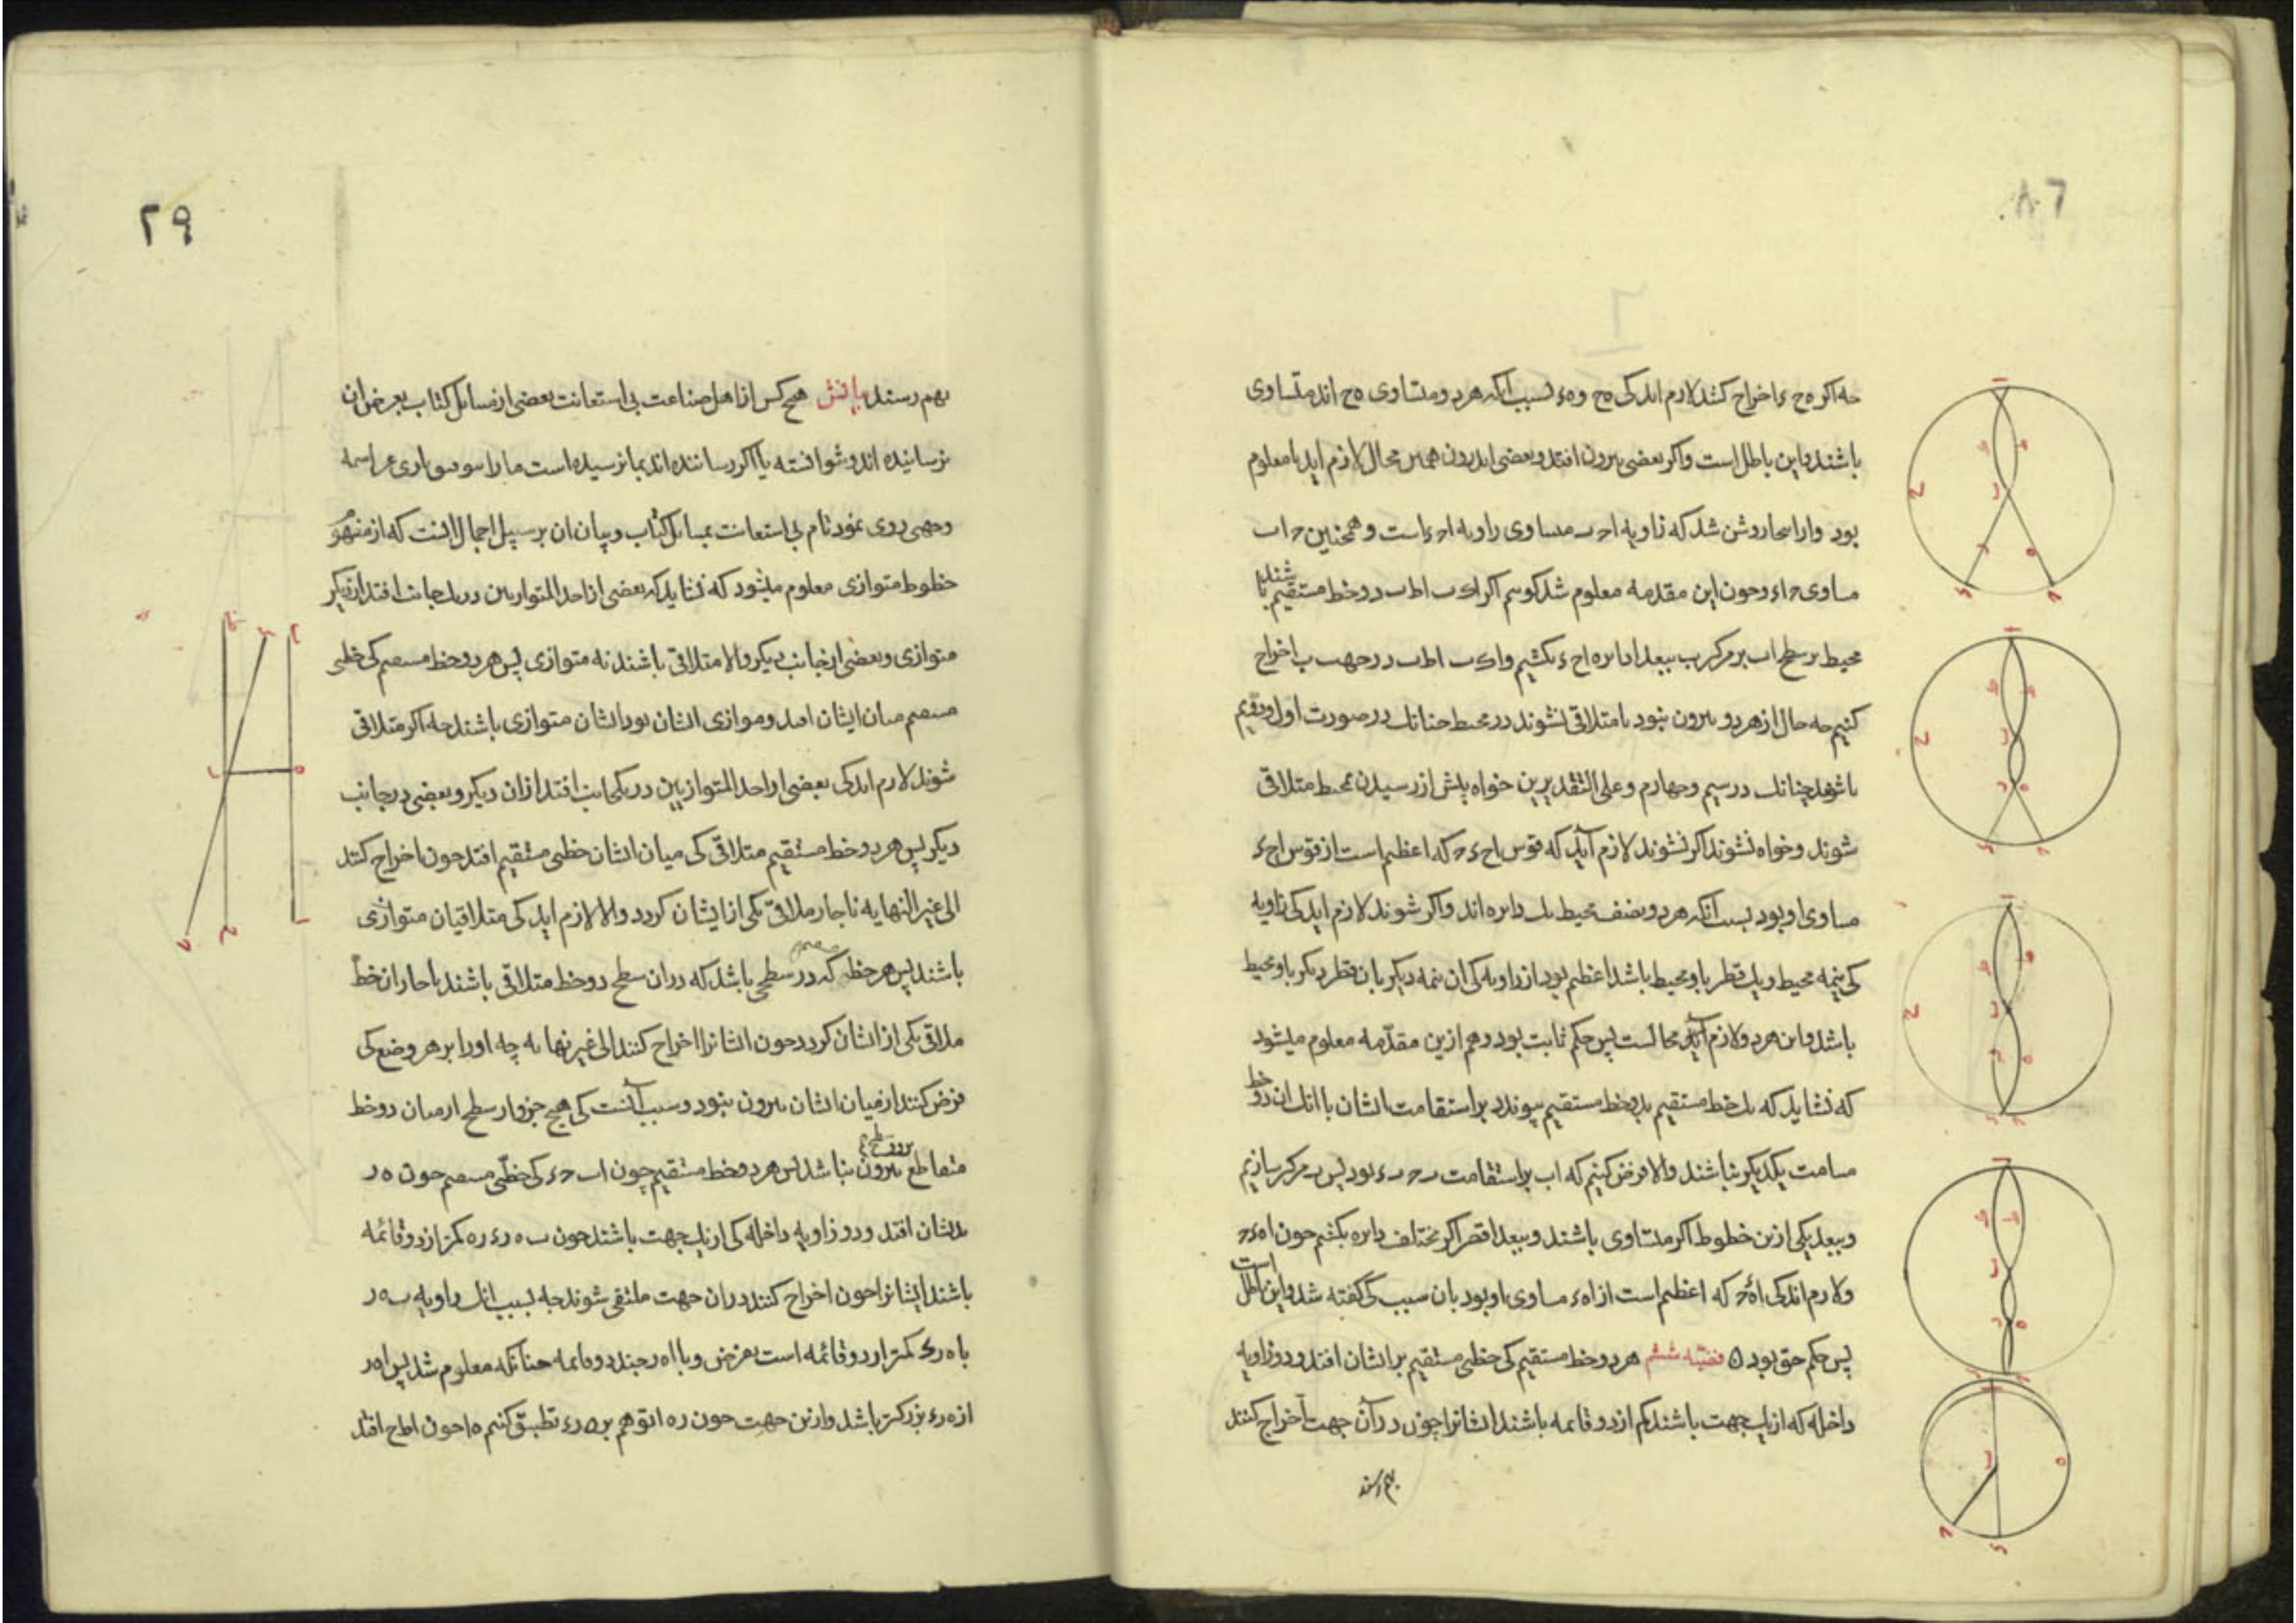 چه اکر ه ح ء اخراج کنند لازم اید کی ه ح و ه ء بسبب انکه هر دو متساوی ه ح اند متساوی
باشند و این باطل است واکر بعضی بیرون افتد و بعضی اندرون همین محال لازم اید یا معلوم
بود و از اینجا روشن شد که زاویه ا ح ب مساوی زاویه ا ح ء است و همچنین ح ا ب
مساوی ح ا ء و چون این مقدمه معلوم شد کوییم اکر ا ک ب ا ط ب دو خط مستقیم باشند
محیط بر سطح اب بر مرکز ب ببعد ا دایره ا ح ء بکشیم و ا ک ب ا ط ب در جهت ب اخراج
کنیم چه حال از هر دو بیرون نبود یا متلاقی نشوند در محیط چنانک در صورت اول و دویم
یا شوند چنانک در سیم و چهارم و علی التقدیرین خواه پیش از رسیدن بمحیط متلاقی
شوند و خواه نشوند اکر نشوند لازم آید که قوس اح ء ه که اعظم است از قوس اح ء
مساوی او بود بسبب انکه هر دو نصف محیط یک دایره اند واکر شوند لازم اید کی زاویه
کی نیمه محیط و یک قطر با و محیط باشد اعظم بود از زاویه کی ان نیمه دیکر با ن قطر دیکر با و محیط
باشد و این هر دو لازم آید محالست پس حکم ثابت بود و هم ازین مقدمه معلوم میشود
که نشاید که یک خط مستقیم بدو خط مستقیم پیوندد بر استقامت ایشان با انک ان دو خط
مسامت یکدیکر نباشند والا فرض کنیم که اب بر استقامت ب ح ب ء بود پس ب مرکز سازیم
و ببعد یکی ازین خطوط اکر متساوی باشند و ببعد اقصر اکر مختلف دایره بکشیم چون ا ه ء ح
و لازم اید کی ا ه ح که اعظم است از ا ه ء مساوی او بود بان سبب کی کفته شد و این باطل است
پس حکم حق بود ه قضیه ششم هر دو خط مستقیم کی خطی مستقیم بر ایشان افتد و دو زاویه
داخله که از یک جهت باشند کم از دو قائمه باشند ایشانرا چون در آن جهت اخراج کنند
بهم رسند
٢٩
بهم رسند بیانش هیچ کس از اهل صناعت بی استعانت بعضی از مسائل کتاب بعرض ان
نرسانیده اند و نتوانسته یا اکر رسانیده اند بما نرسیده است ما را بتوفیق باری عز اسمه
وجهی روی نمود تام بی استعانت بمسایل کتاب و بیان ان بر سبیل اجمال اینست که از مفهوم
خطوط متوازی معلوم میشود که نشاید که بعضی از احد المتوازیین در یک جانب افتد از دیکر
متوازی و بعضی از جانب دیکر والا متلاقی باشند نه متوازی پس هر دو خط مستقیم کی خطی
مستقیم میان ایشان افتد و موازی ایشان بود ایشان متوازی باشند چه اکر متلاقی
شوند لازم اید کی بعضی از احد المتوازیین در یک جانب افتد از ان دیکر و بعضی در جانب
دیکر پس هر دو خط مستقیم متلاقی کی میان ایشان خطی مستقیم افتد چون اخراج کنند
الی غیر النهایه ناچار ملاقی یکی از ایشان کردد والا لازم اید کی متلاقیان متوازی
باشند پس هر خط مستقیم که در سطحی باشد که در ان سطح دو خط متلاقی باشند ناچار ان خط
ملاقی یکی از ایشان کردد چون ایشانرا اخراج کنند الی غیر نهایه چه او را بر هر وضع کی
فرض کنند از میان ایشان بیرون نبود و سبب آنست کی هیچ جزو از سطح از میان دو خط
متقاطع بیرون نباشد پس هر دو خط مستقیم چون اب ح ء کی خطی مستقیم چون ه ر
بدیشان افتد و دو زاویه داخله کی از یک جهت باشند چون ب ه ر ء ر ه کمتر از دو قائمه
باشند ایشانرا چون اخراج کنند در ان جهت ملتقی شوند چه بسبب انک زاویه ب ه ر
با ه ر ء کمتر از دو قائمه است بفرض و با ا ه ر چند دو قایمه چنانکه معلوم شد پس ا ه ر
از ه ر ء بزرکتر باشد و ازین جهت چون ر ه ا توهم بر ه ر ء تطبیق کنیم ه ا چون ا ط ح افتد